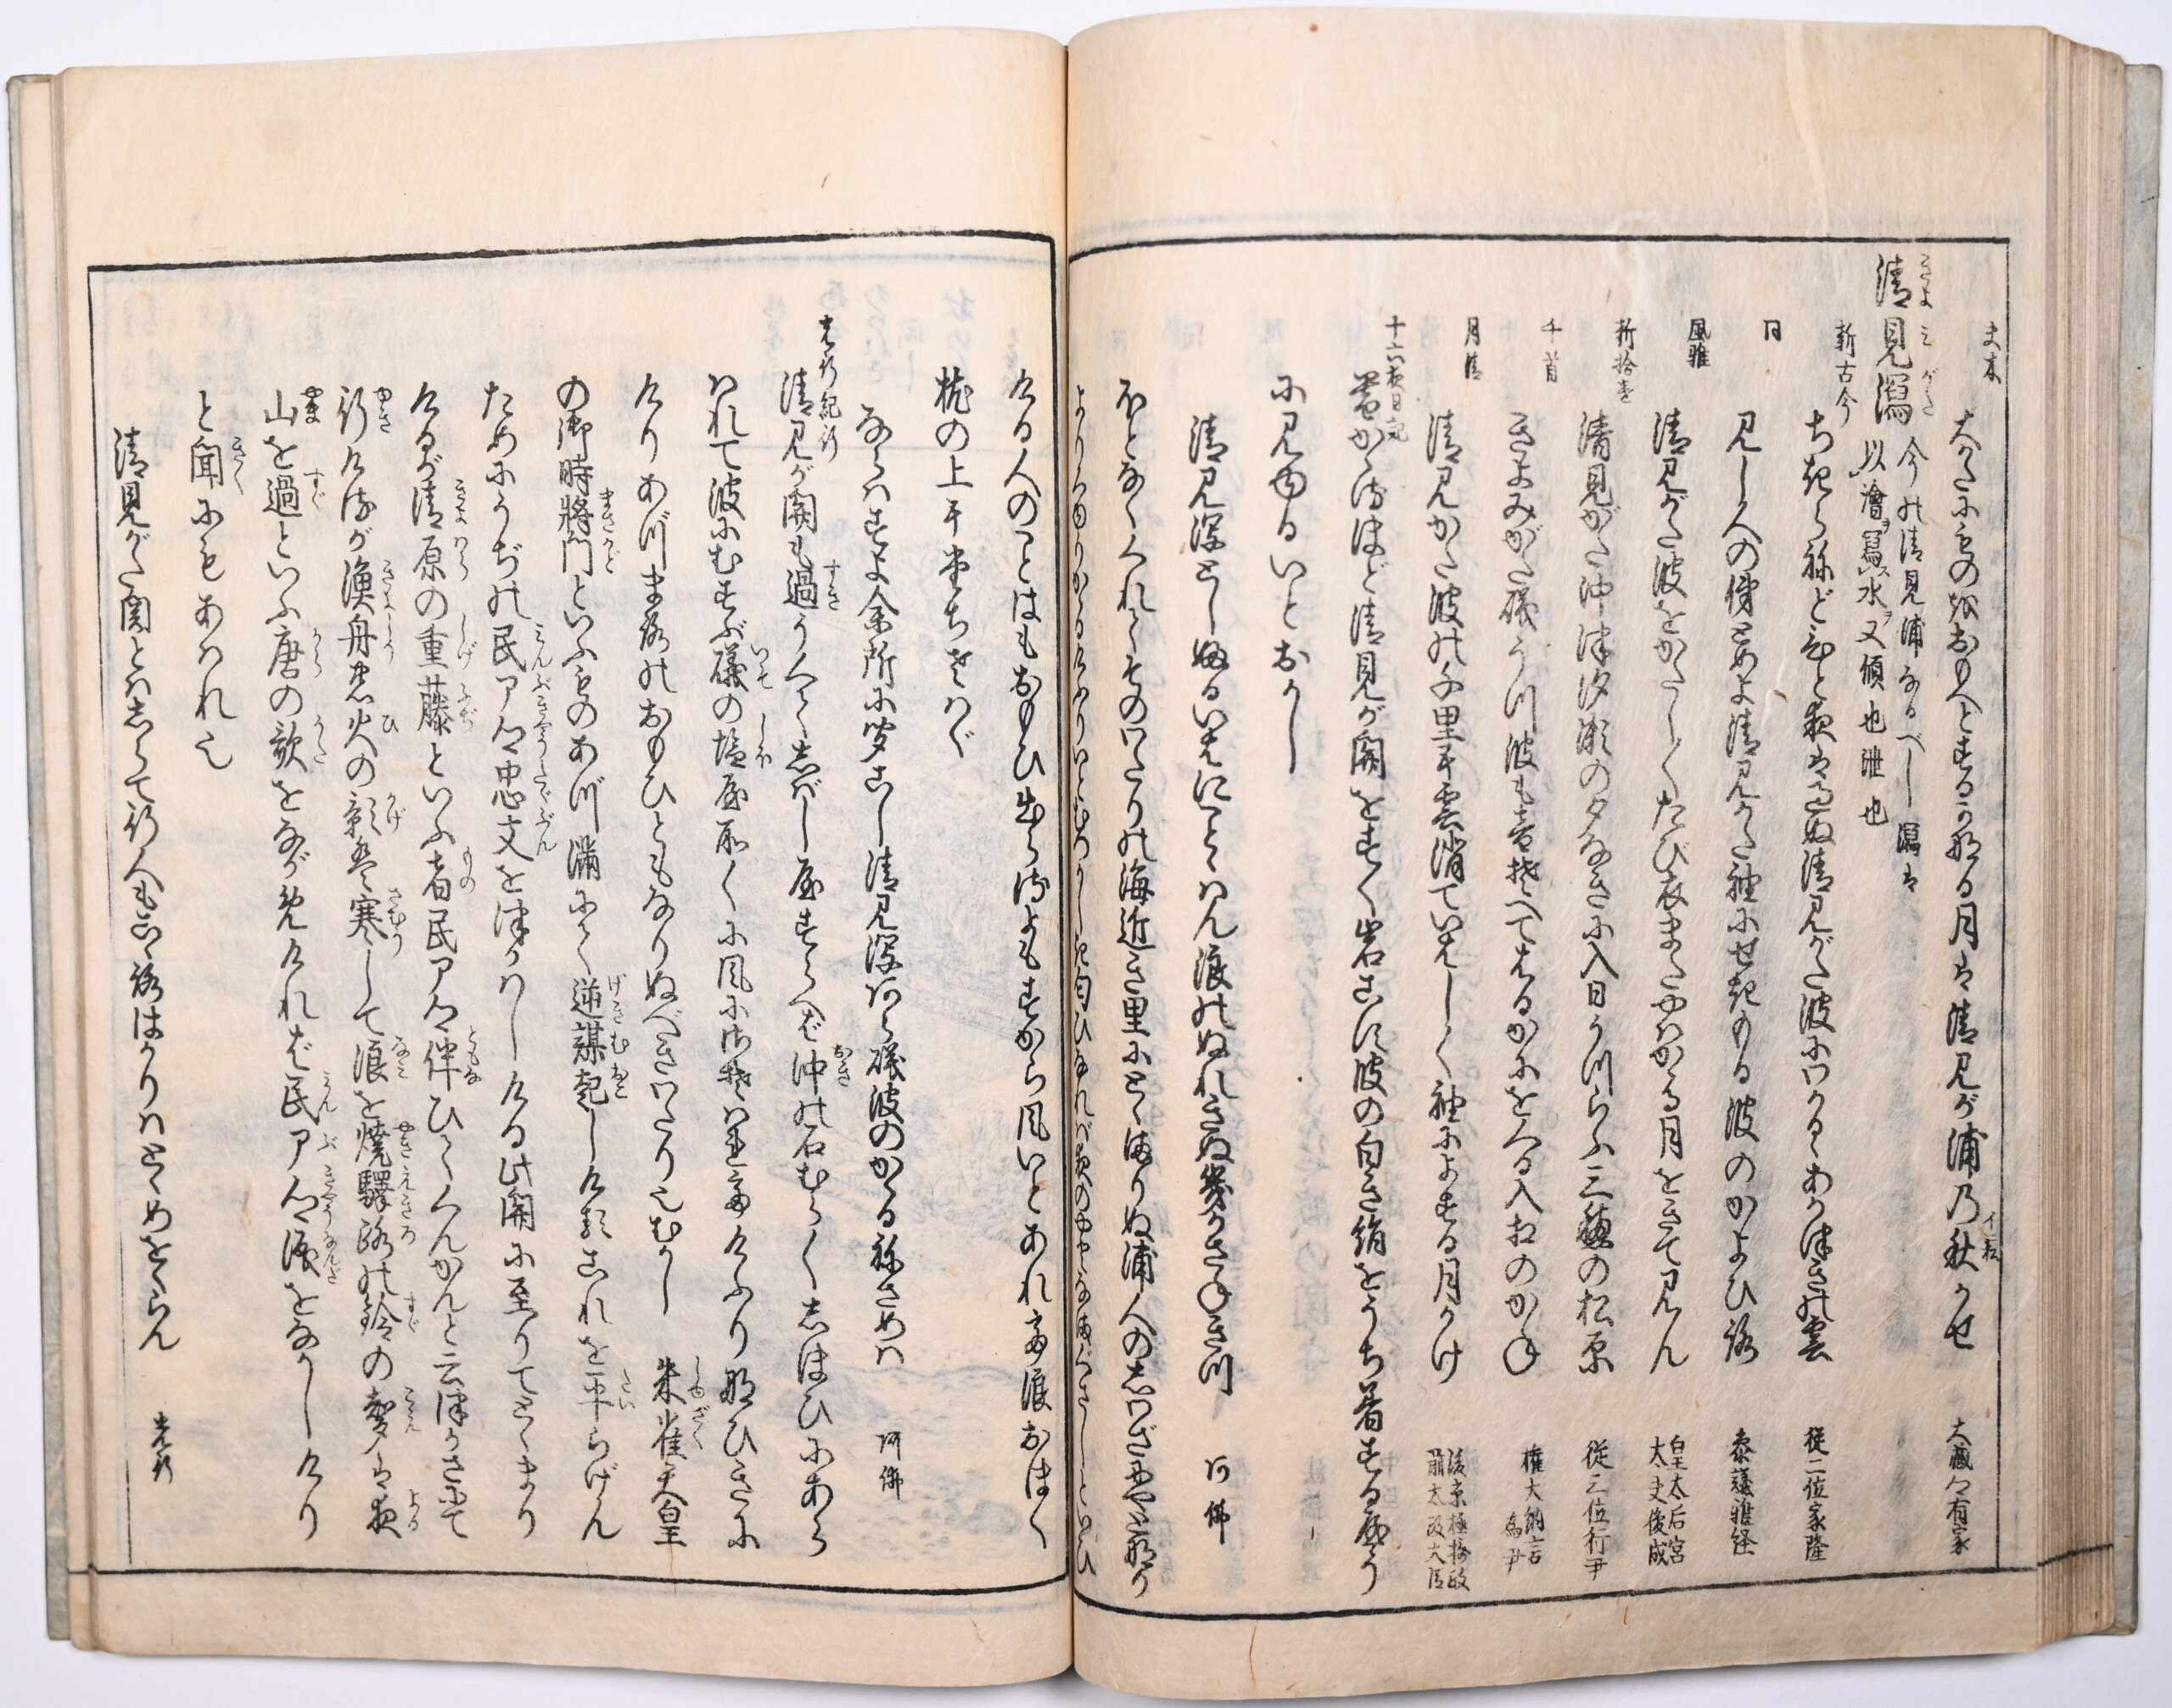 夫木 大かたにものおもへとする那る月は清見が浦乃秋かせ 大蔵卿有家
清見瀉 今の清見浦なるべし 瀉は
以滄寫水又傾也泄也
新古今 ちぎらねどひと夜は過ぬ清見がた波にわかるゝあかつきの雲 従二位家隆
同 見し人の俤とめよ清見がた袖にせきもる波のかよひ路 参議雅経
風雅 清見がた波をかたしくたび衣またやはかゝる月をきて見ん 皇太后宮太夫俊成
新拾遺 清見がた沖津汐瀬の夕なきに入日うつらふ三穂の松原 従三位行尹
千首 きよみがた磯うつ波も音そへてはるかにをくる入相のかね 権大納言為尹
月清 清見かた波の千里に雲消ていはしく袖によする月かけ 後京極摂政前太政大臣
十六夜日記 暮かゝるほど清見が関をすぐ岩こす波の白き絹をうち着するやう
に見ゆるいとおかし
清見潟としふるいはにことゝはん浪のぬれきぬ幾かさねきつ 阿佛
ほとなくくれてそのわたりの海近き里にとゝまりぬ浦人のしわざにやとなりよりくゆりかゝるけふりいとむつかしき匂ひなれば夜のやどなまぐさしといひ
ける人のことはもおもひ出らるよもすから風いとあれて浪おほく
枕の上に立ちさはぐ
ならはすよ余所に聞こし清見潟あら磯波のかゝるねさめは 阿佛
光行紀行 清見が関も過うくてしばしやすらへば沖の石むらくしほひにあら
はれて波にむせぶ礒の塩屋所々に風にさそはれて煙ふりなひきに
けりあづま路のおもひともなりぬべきわたり也むかし 朱雀天皇
の御時将門といふものあづ満にて逆謀起しけりこれを平らげん
ためにうぢの民部卿忠文をつかはしける此関に至りてとゝまり
けるが清原の重藤といふ者民部卿に伴ひてくんかんと云つかさにて
行けるが漁舟火の影寒して浪を焼驛路の鈴の聲は夜
山を過といふ唐の歌をながめければ民部卿涙をながしけり
と聞にもあはれ也
清見がた関とはしらて行人もこゝろはかりはとゝめをくらん 光行